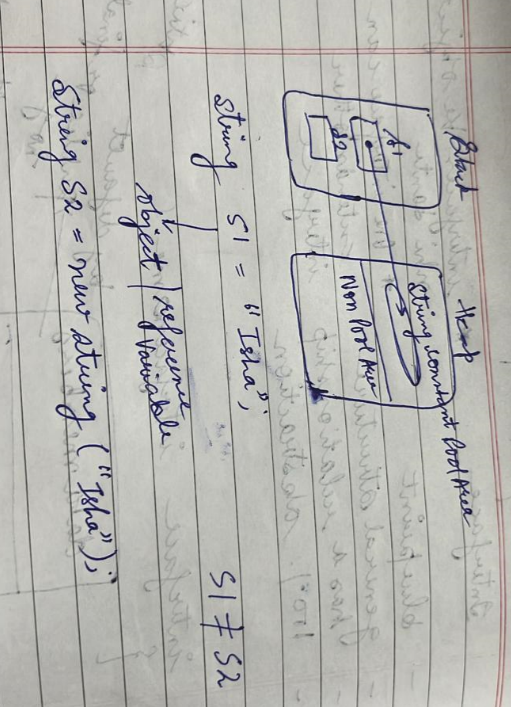 Stack
Heap
s1
s2
String constant Pool Area
Non Pool Area
String S1 = "Isha";
S1 ≠ S2
object / reference
variable
String S2 = new String ("Isha");